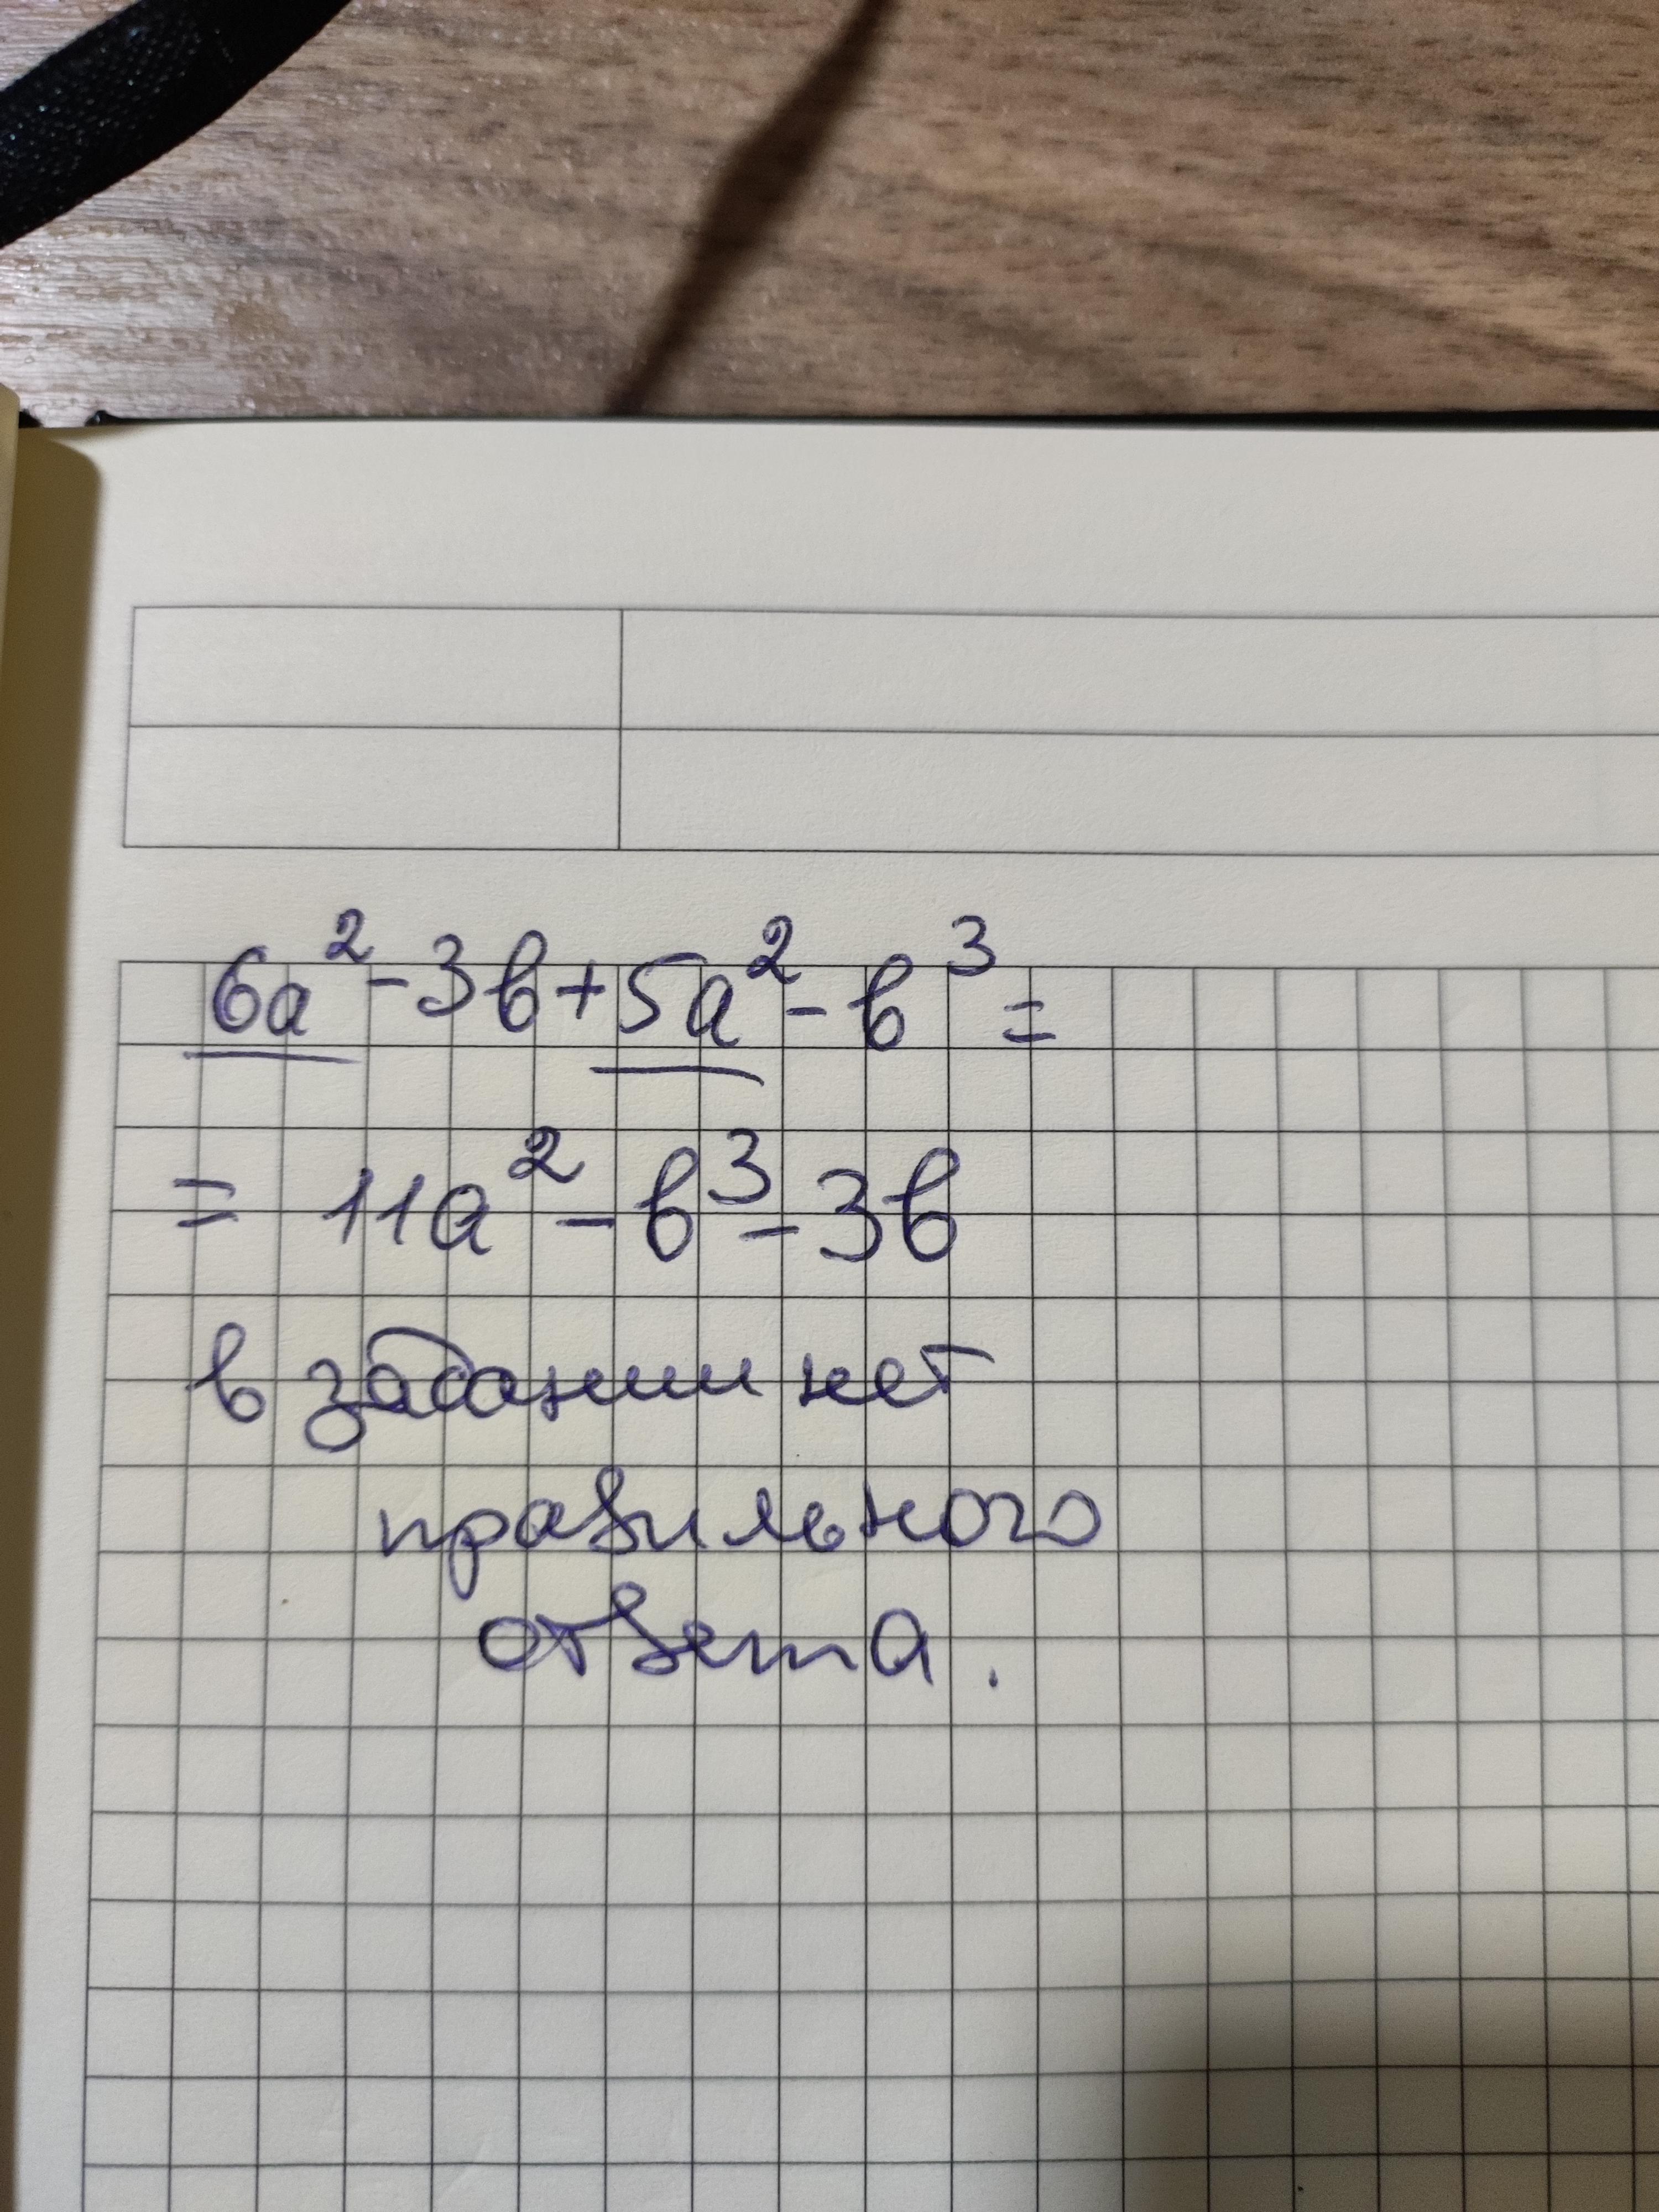 6a² - 3b + 5a² - b³ =
= 11a² - b³ - 3b
в задании нет
правильного
ответа.